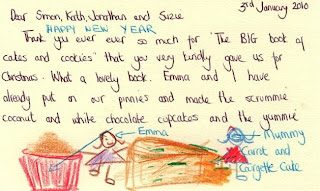 3rd January 2010
Dear Simon, Kath, Jonathan and Suzie
HAPPY NEW YEAR
Thank you ever ever so much for 'The BIG book of
cakes and cookies' that you very kindly gave us for
Christmas. What a lovely book. Emma and I have
already put on our pinnies and made the scrummie
coconut and white chocolate cupcakes and the yummie
Emma
Mummy
Carrot and
Corgette Cake